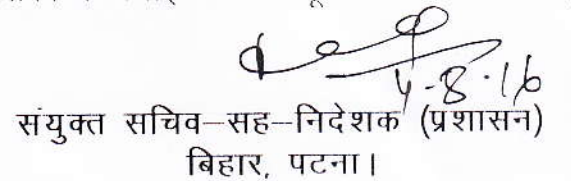 4-8-16
संयुक्त सचिव–सह–निदेशक (प्रशासन)
बिहार, पटना।